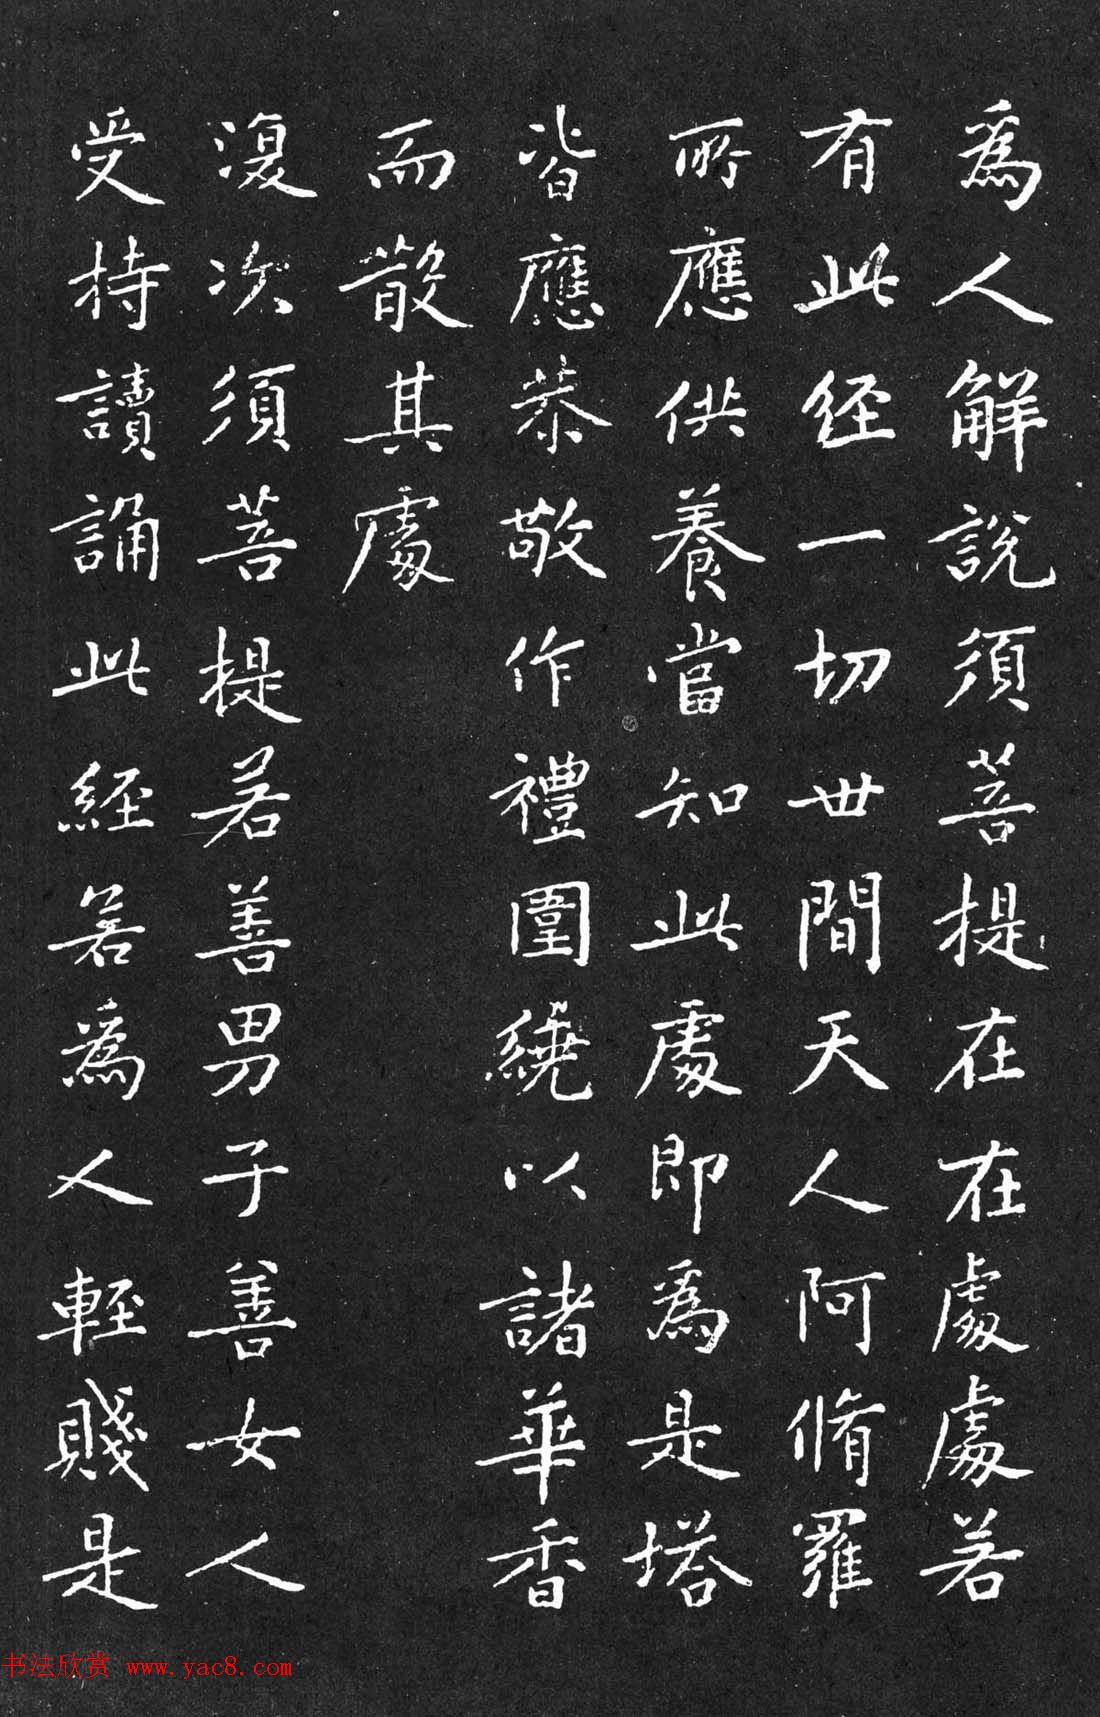 爲人解說須菩提在在處處若
有此経一切世間天人阿脩羅
所應供養當知此處即爲是塔
皆應恭敬作禮圍繞以諸華香
而散其處
復次須菩提若善男子善女人
受持讀誦此経若爲人輕賤是
书法欣赏 www.yac8.com